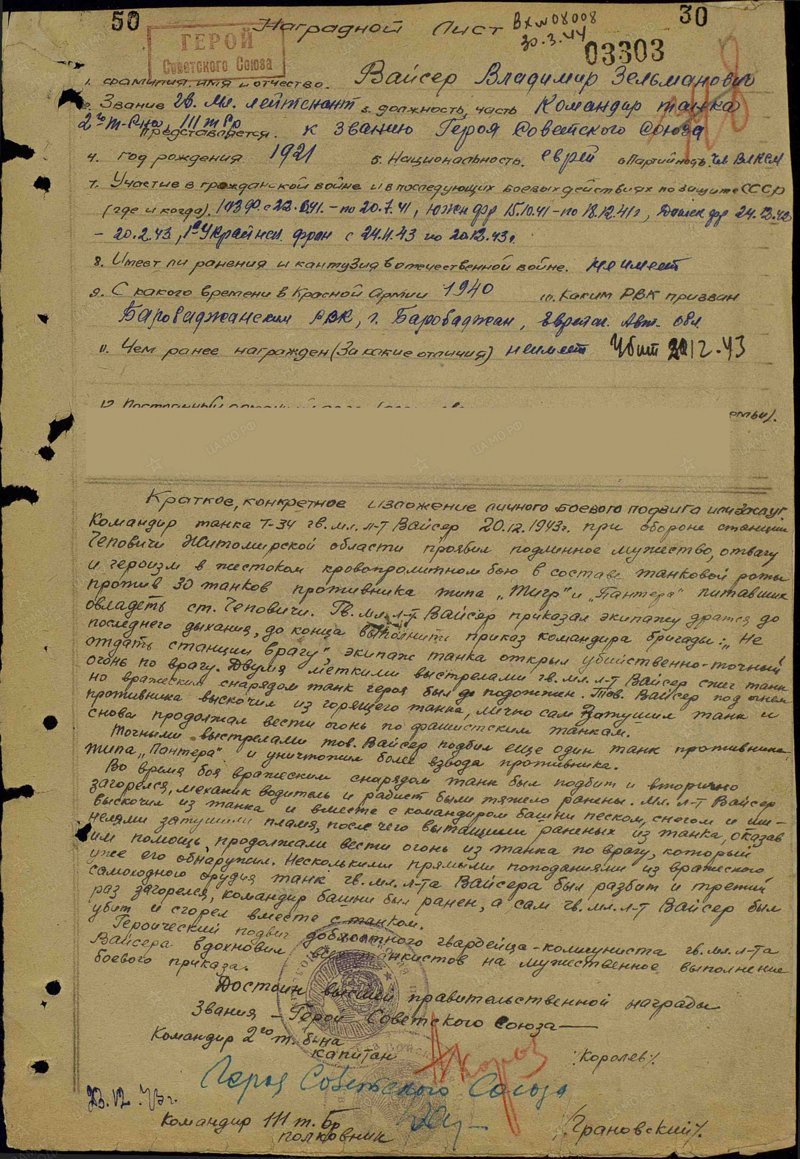 50
30
Наградной Лист
Вх №08008
30.3.44
03303
ГЕРОЙ
Советского Союза
1. Фамилия, имя и отчество. Вайсер Владимир Зельманович
2. Звание Гв. мл. лейтенант 3. должность, часть Командир танка
2го т-б-на, 111 т бр
представляется. к званию Героя Советского Союза
4. год рождения 1921 5. Национальность. еврей 6 Партийность чл ВЛКСМ
7. Участие в гражданской войне и в последующих боевых действиях по защите СССР
(где и когда). с 22.6.41.-по 20.7.41, Южн фр 15.10.41-по 18.12.41г,
- 20.2.43, 1й Украинск. фрон с 24.11.43 по 20.12.43г.
8. Имеет ли ранения и кантузия в отечественной войне. неимеет
9. С какого времени в Красной Армии 1940 10. Каким РВК призван
Баробаджанским РВК, г. Баробаджан, Еврейск. Авт. обл
11. Чем ранее награжден (За какие отличия) неимеет Убит 20.12.43
ЦАМО.РФ
Краткое, конкретное изложение личного боевого подвига или заслуг
Командир танка Т-34 гв. мл. л-т Вайсер 20.12.1943г. при обороне станции
Чеповичи Житомирской области проявил подлинное мужество, отвагу
и героизм в жестоком кровопролитном бою в составе танковой роты
против 30 танков противника типа „Тигр" и „Пантера" питавших
овладеть ст. Чеповичи. Гв. мл. л-т Вайсер приказал экипажу дратся до
последнего дыхания, до конца выполнить приказ командира бригады: „Не
отдать станции врагу", экипаж танка открыл убийственно-точный
огонь по врагу. Двумя меткими выстрелами гв. мл. л-т Вайсер сжег танк
но вражеским снарядом танк героя был подожжен. Тов. Вайсер под огнем
противника выскочил из горящего танка, лично сам затушил танк и
снова продолжал вести огонь по фашистским танкам.
Точными выстрелами тов. Вайсер подбил еще один танк противника
типа „Пантера" и уничтожил более взвода противника.
Во время боя вражеским снарядом танк был подбит и вторично
загорелся, механик водитель и радист были тяжело ранены. Мл. л-т Вайсер
выскочил из танка и вместе с командиром башни песком, снегом и ши-
нелями затушили пламя, после чего вытащили раненых из танка, оказав
им помощь, продолжали вести огонь из танка по врагу, который
уже его обнаружил. Несколькими прямыми попаданиями из вражеского
самоходного орудия танк гв. мл. л-та Вайсера был разбит и третий
раз загорелся, командир башни был ранен, а сам гв. мл. л-т Вайсер был
убит и сгорел вместе с танком.
Героический подвиг доблестного гвардейца-коммуниста гв. мл. л-та
Вайсера вдохновил всех танкистов на мужественное выполнение
боевого приказа.
Достоин высшей правительственной награды
Звания - Герой Советского Союза
Командир 2го т. б-на
капитан /Королев/.
Героя Советского Союза
23.12.43г.
Командир 111 т. Бр
полковник /Грановский/.